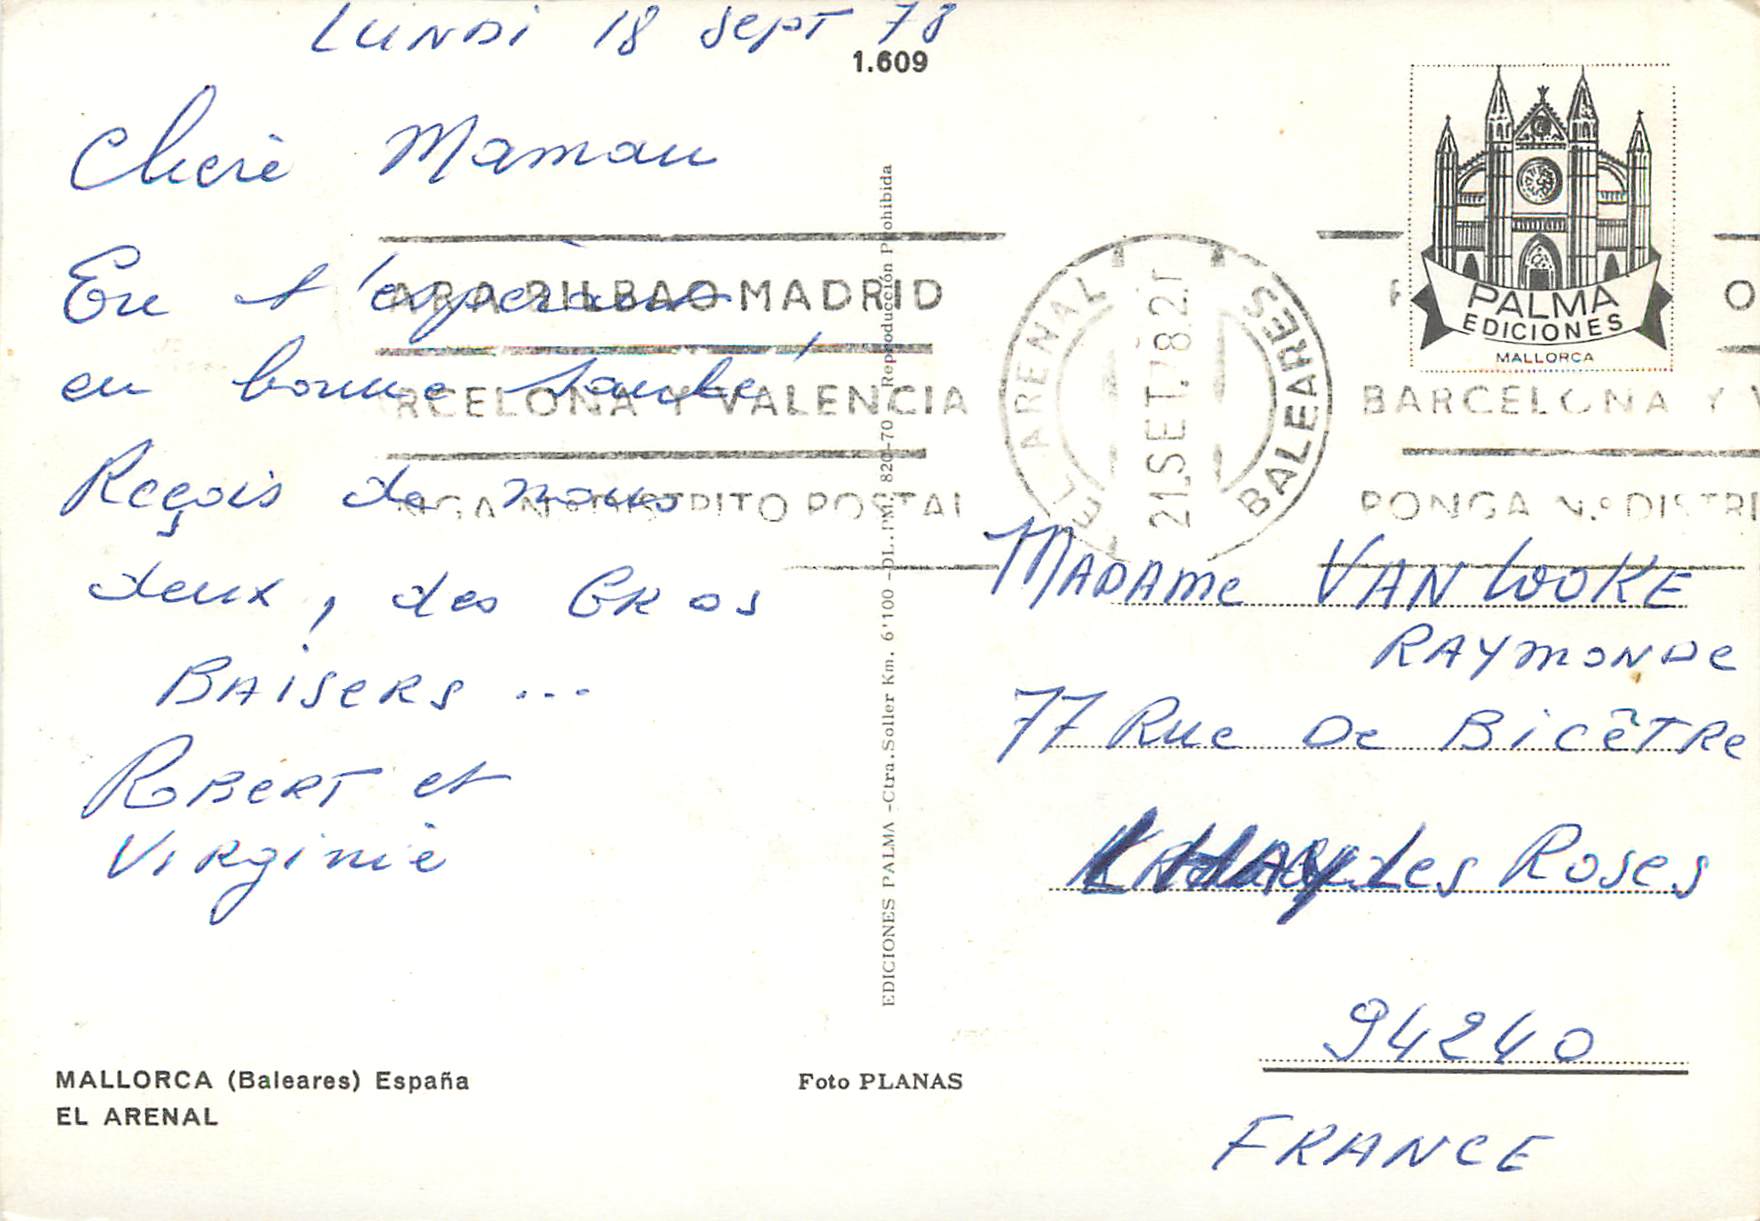 LUNDI 18 Sept 78
1.609
Cherè Maman
En t'espérant
en bonne santé
Reçois de nous
deux, des GROS
BAISERS ...
ROBERT et
VIRginie
MALLORCA (Baleares) España
EL ARENAL
Foto PLANAS
EDICIONES PALMA -Ctra. Soller Km. 6'100 -DL. PM. 820-70 Reproducción Prohibida
ARA BILBAO MADRID
RCELONA Y VALENCIA
NGA N.º DISTRITO POSTAL
EL ARENAL
21.SET.78.21
BALEARES
BARCELONA Y V
PONGA N.º DISTRI
PALMA
EDICIONES
MALLORCA
MADAME VAN LOOKE
RAYMONDE
77 Rue De BicêTRe
L'HAY Les Roses
94240
FRANCE